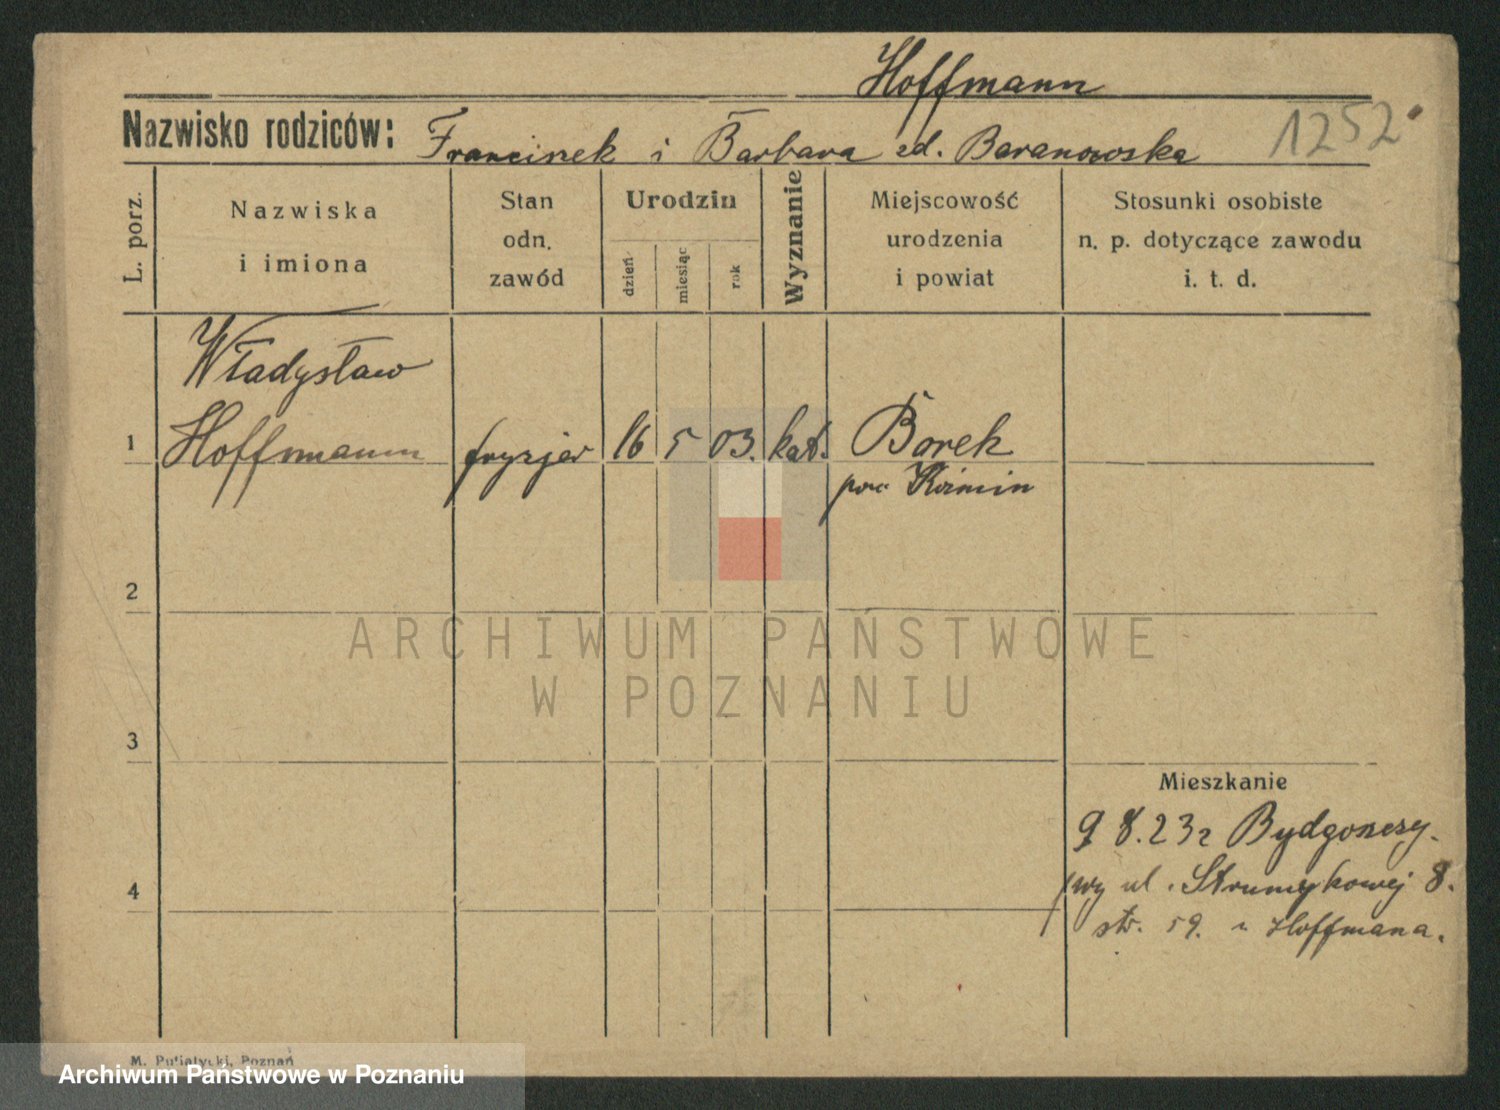 Hoffmann
Nazwisko rodziców: Franciszek i Barbara zd. Baranowska
1252
L. porz.
Nazwiska
i imiona
Stan
odn.
zawód
Urodzin
dzień
miesiąc
rok
Wyznanie
Miejscowość
urodzenia
i powiat
Stosunki osobiste
n. p. dotyczące zawodu
i. t. d.
Władysław
1 Hoffmann fryzjer 16 5 03. kat. Borek
pow Koźmin
2
3
4
Mieszkanie
9 8.23 z Bydgoszczy.
przy ul. Strumykowej 8.
str. 59. u Hoffmana.
M. Putiatycki, Poznań
ARCHIWUM PAŃSTWOWE
W POZNANIU
Archiwum Państwowe w Poznaniu